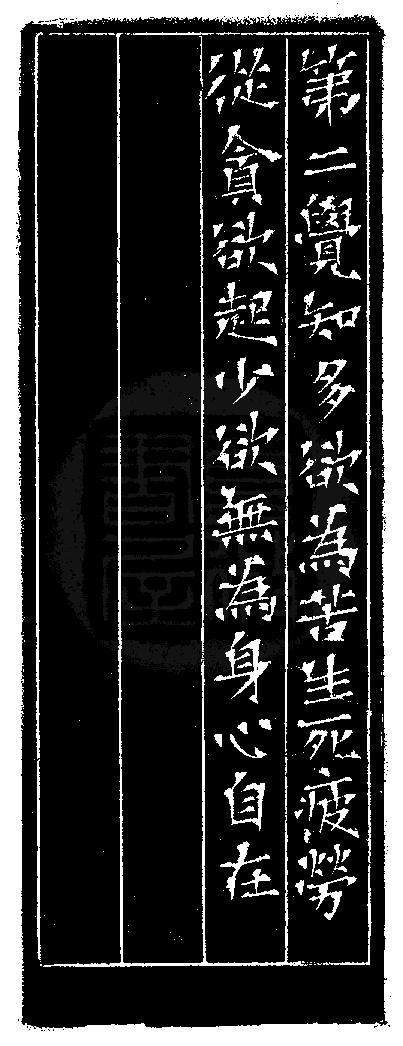 第二覺知多欲為苦生死疲勞
從貪欲起少欲無為身心自在